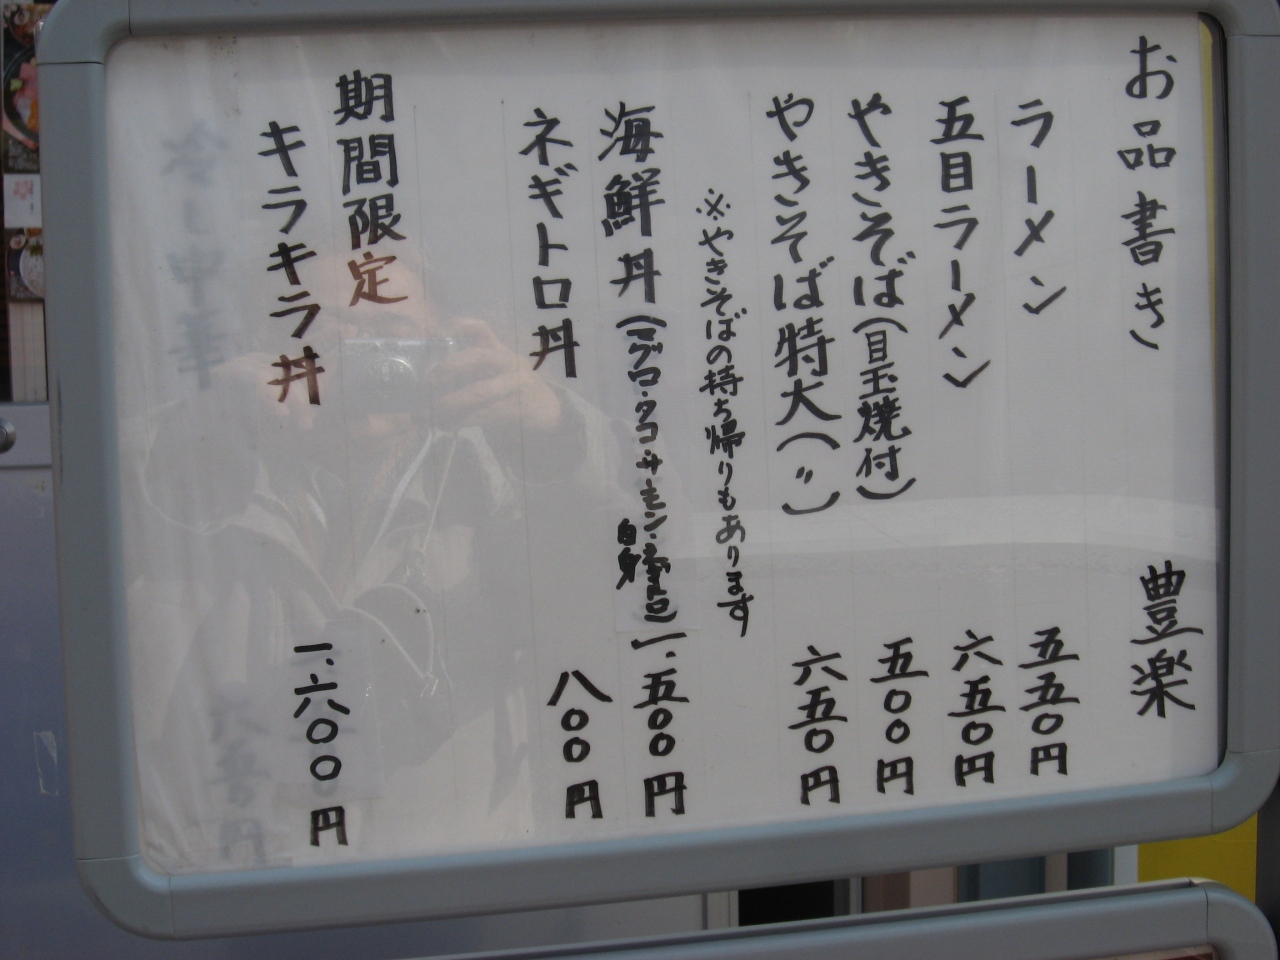 お品書き 豊楽
ラーメン 五五〇円
五目ラーメン 六五〇円
やきそば(目玉焼付) 五〇〇円
やきそば特大(〃) 六五〇円
※やきそばの持ち帰りもあります
海鮮丼(マグロ・タコ・サーモン・ 白身) 一、五〇〇円
ネギトロ丼 八〇〇円
期間限定
キラキラ丼 一、六〇〇円
冷し中華